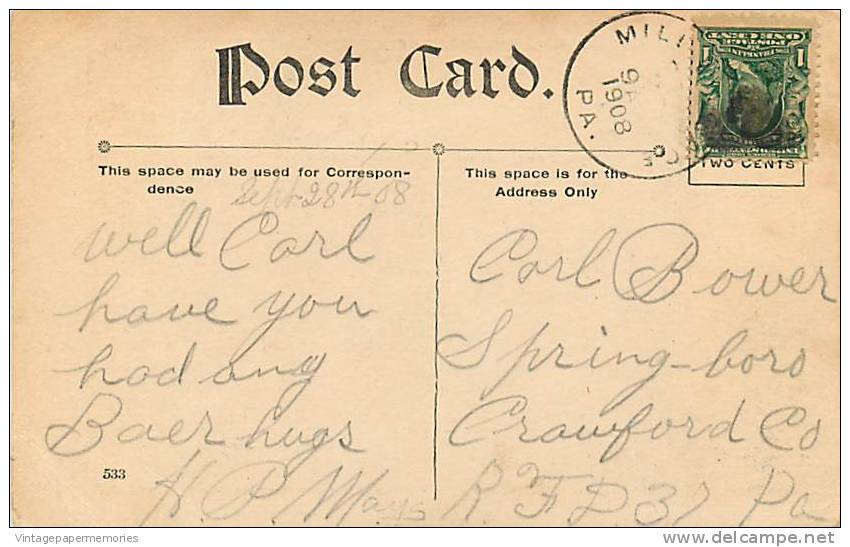 Post Card.
MILI
9A
1908
PA.
ONE CENT
POSTAGE
1 1
TWO CENTS
This space may be used for Correspon-
dence
Sept 28th-08
This space is for the
Address Only
Well Carl
have you
had any
Baer hugs
H. P. Mays
Carl Bower
Spring-boro
Crawford Co
R. F D 37 Pa
533
Vintagepapermemories
delcampe.net